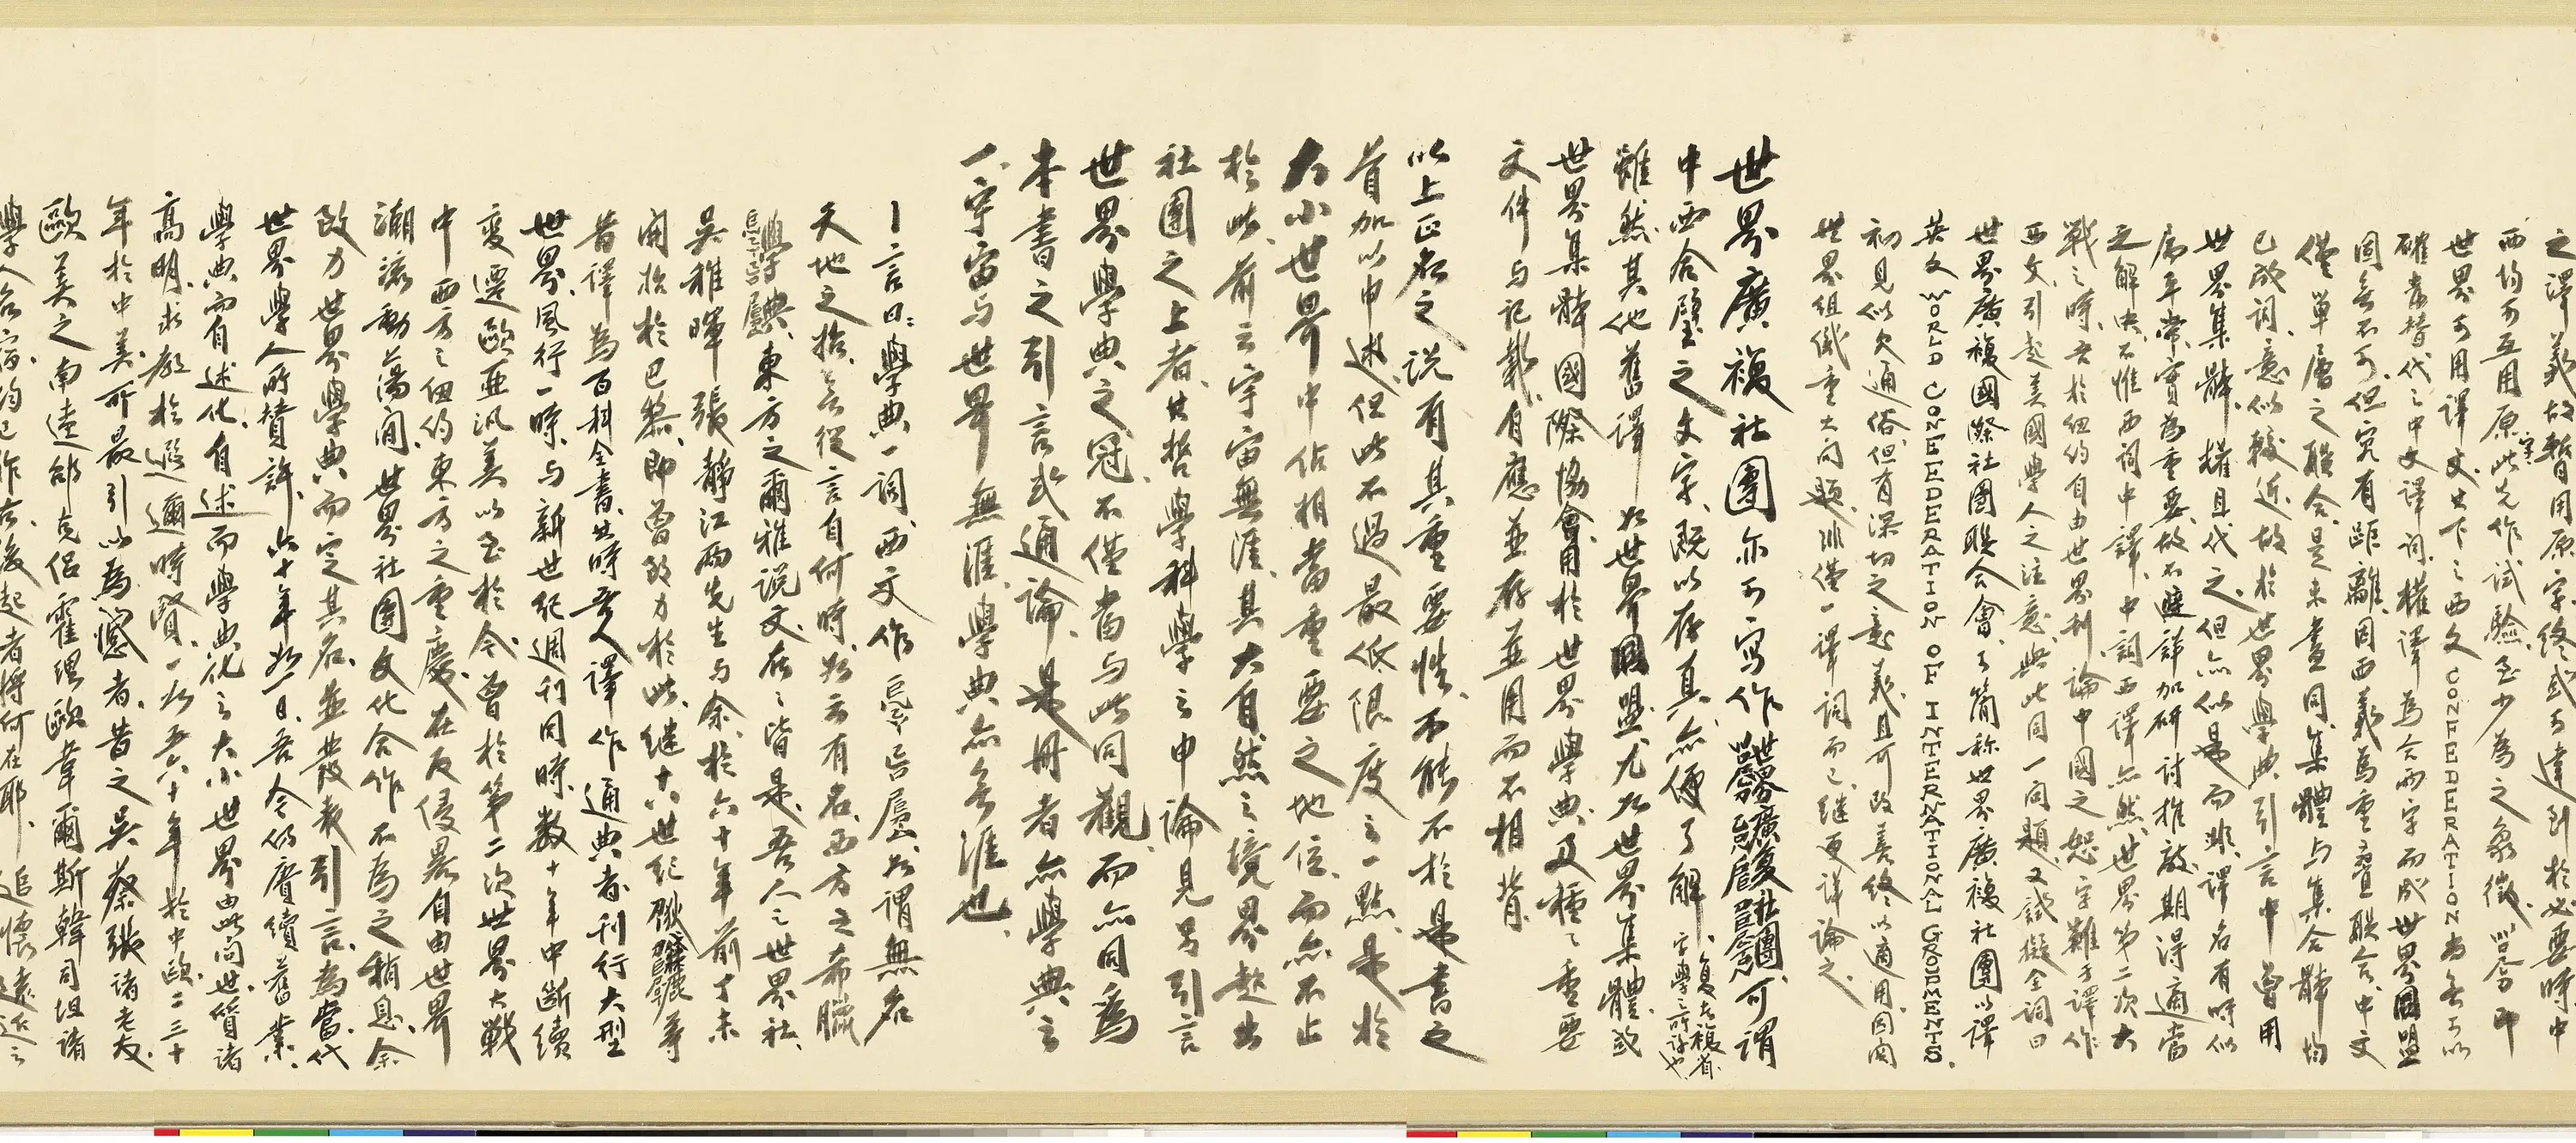 之譯義故暫用原字終或可達到於必要時中
西均可互用原字此先作試驗至少為之象徵
世界可用譯文出下之西文CONFEDERATION者亦可以
確者替代之中文譯詞權譯為合兩字而成世界國盟
固無不可但究有距離因西義為重疊聯合中文
僅單層之聯合是未盡同集體与集合體均
已成詞意似較近故於世界學典引言中曾用
世界集體權且代之但亦似是而非譯名有時似
屬平常實為重要故不避詳加研討推敲期得適當
之解決不惟西詞中譯中詞西譯亦然世界第二次大
戰之時吾於紐約自由世界刊論中國之恕字難于譯作
西文引起美國學人之注意與此同一問題又試擬全詞曰
世界廣複國際社團聯合會可簡称世界廣複社團以譯
英文WORLD CONFEDERATION OF INTERNATIONAL GROUPMENTS.
初見似欠通俗但有深切之意義且可改善終以適用因關
世界組織重大問題非僅一譯詞而已继更詳論之
世界廣複社團亦可寫作 可謂
中西合璧之文字既以存真亦便了解
雖然其他舊譯如世界國盟尤如世界集體或
世界集體國際協會用於世界學典及種種重要
文件与記載自應並存並用而不相背
以上正名之説有其重要性不能不於是書之
首加以申述但此不過最低限度之一點是於
大小世界中佔相當重要之地位而亦不止
於此前云宇宙無涯其大自然之境界超出
社團之上者出哲學科學之申論見另引言
世界學典之冠不僅者与此同觀而亦同為
本書之引言或通論是冊者亦學典之
一宇宙与世界無涯學典亦無涯也
一言曰學典一詞西文作 如謂無名
天地之始無從言自何時如云有名西方之希臘
學典東方之爾雅説文在在皆是吾人之世界社
吳稚暉張靜江兩先生与余於六十年前丁未
開始於巴黎即曾努力於此继十八世紀 等
昔譯為百科全書出時吾人譯作通典者刊行大型
世界風行一時与新世紀週刊同時數十年中斷續
變遷歐亞汎美以至於今曾於第二次世界大戰
中西方之紐約東方之重慶在反侵畧自由世界
潮流動蕩間世界社團文化合作不為之稍息余
致力世界學典而定其名並發表引言為當代
世界學人所贊許六十年如一日吾今仍賡續舊業
學典而有述化自述而學典化之大小世界由此問世質諸
高明求教於遐邇時賢一如五六十年於中歐二三十
年於中美所最引以為憾者昔之吳蔡張諸老友
歐美之南逵郃克侶霍理歐韋爾斯韓司坦諸
學人名宿均已作古後起者將何在耶追懷遠近之